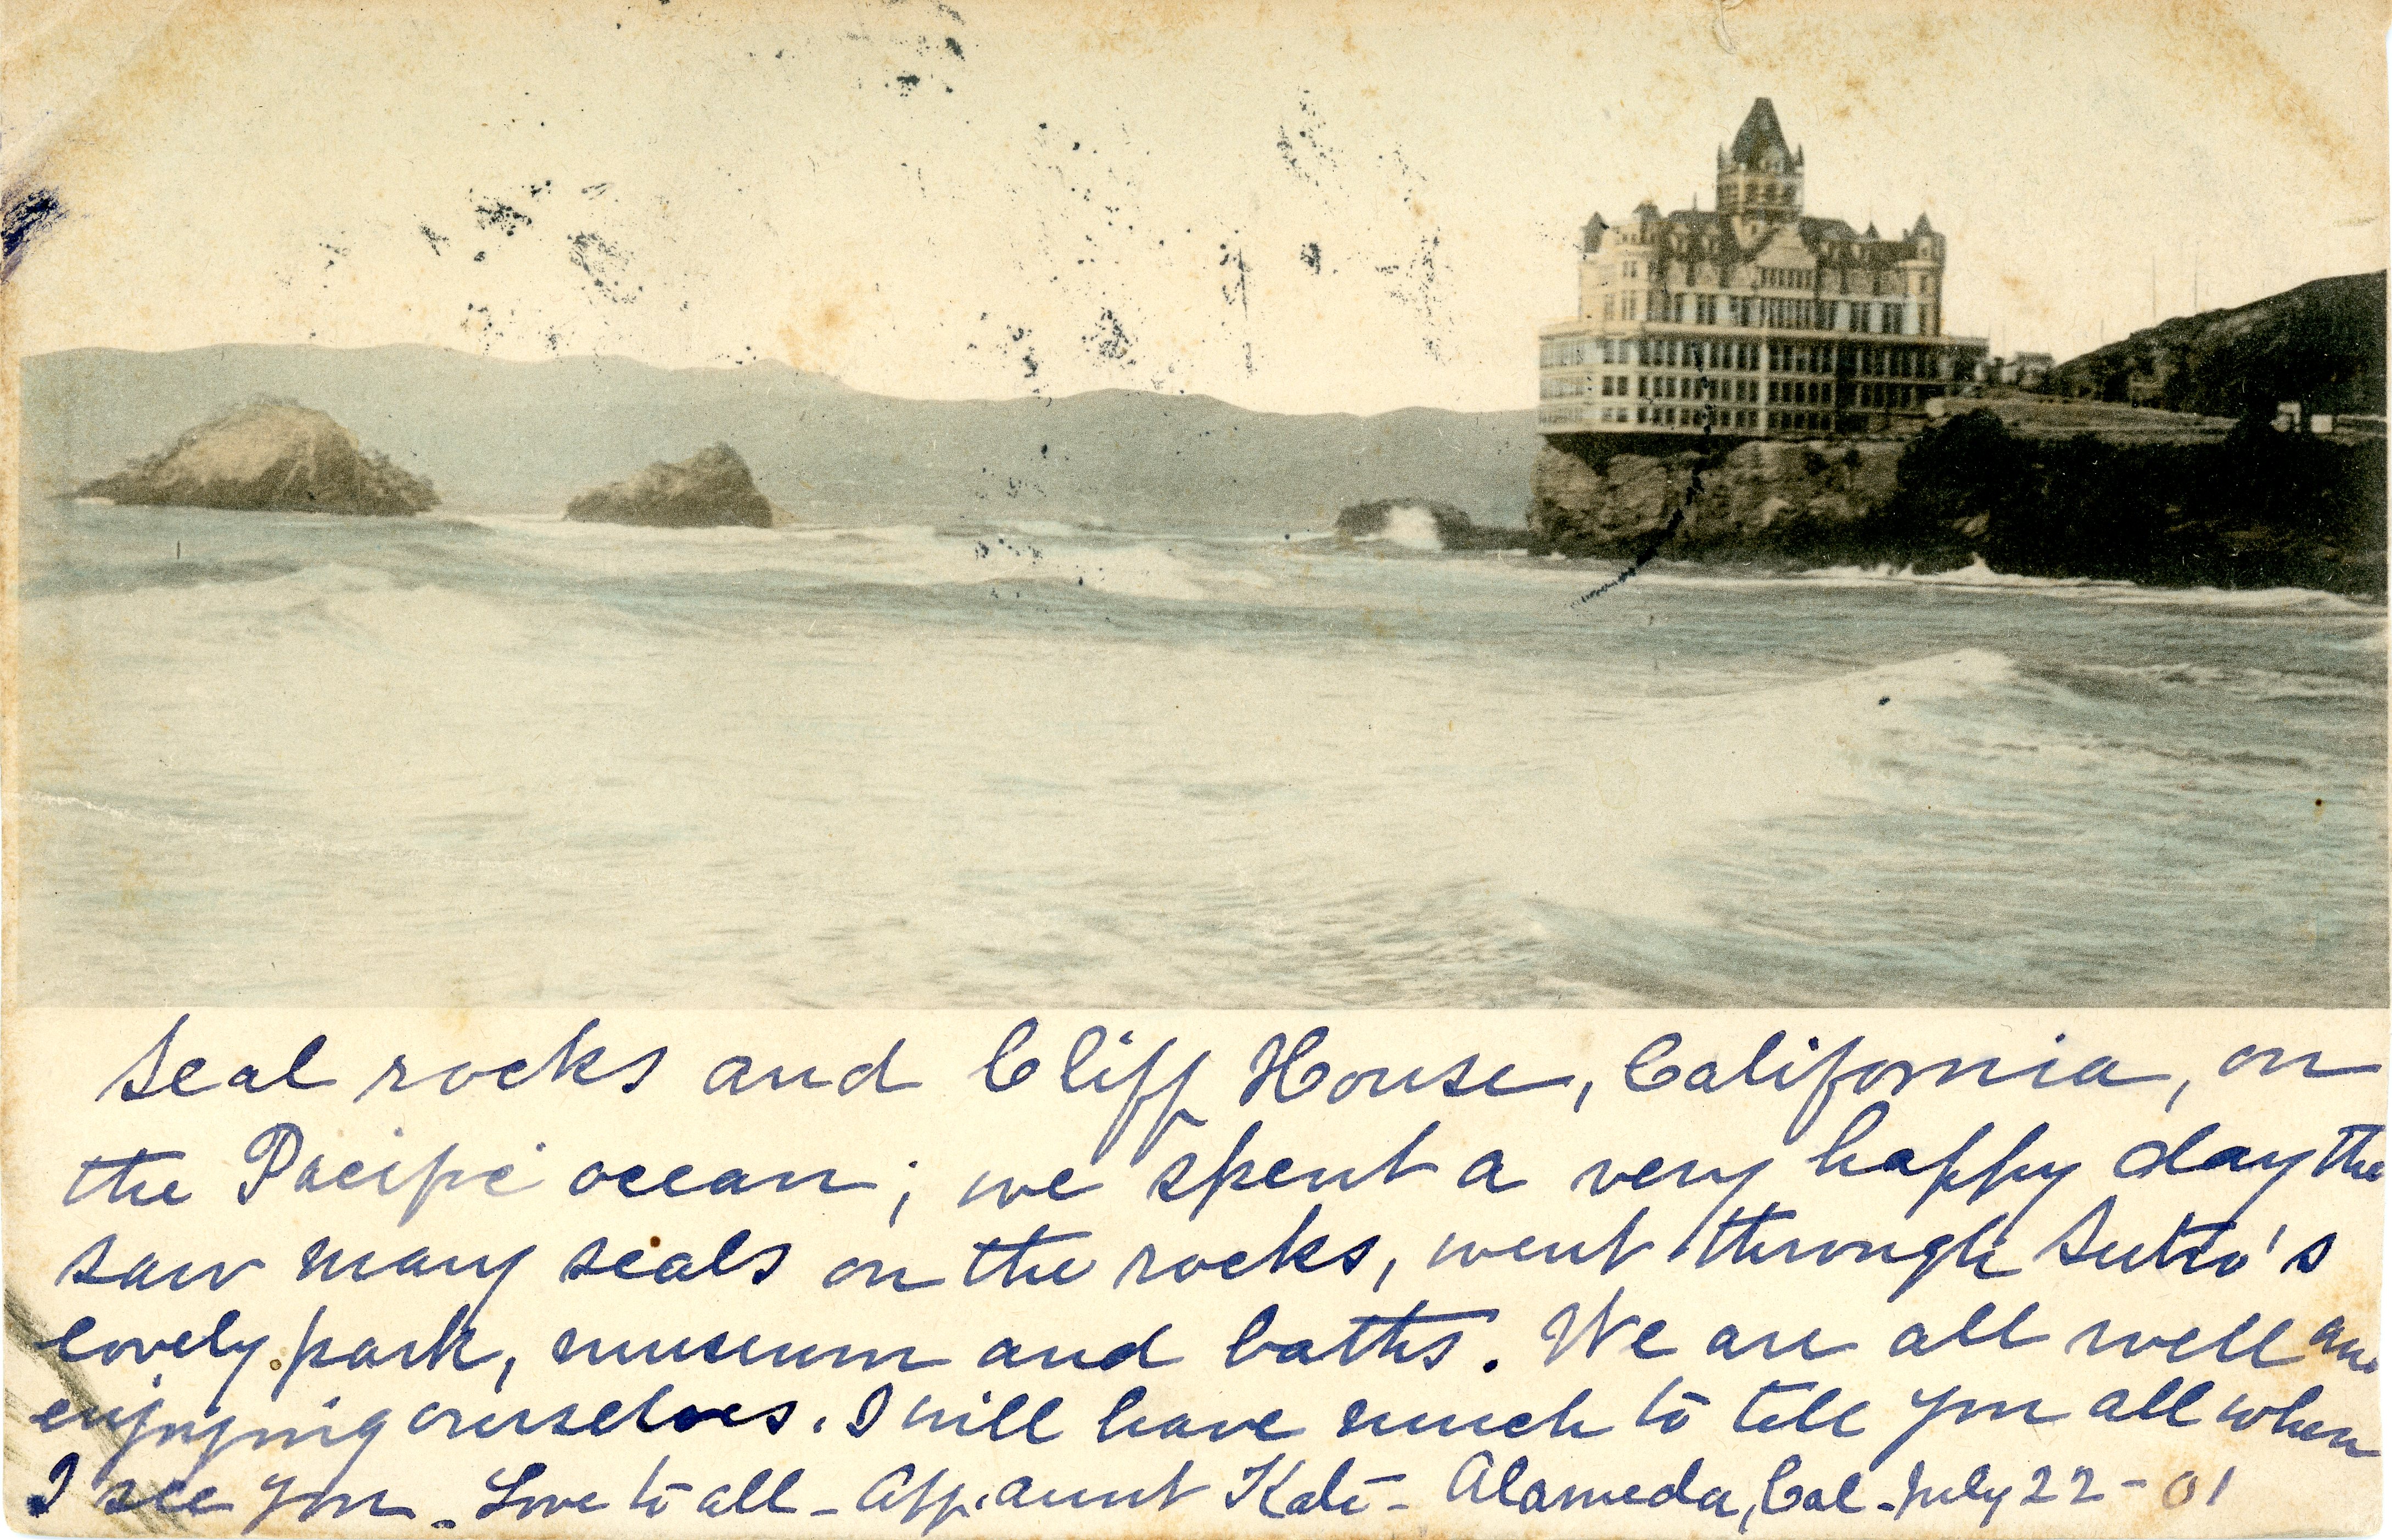 Seal rocks and Cliff House, California, on
the Pacific ocean; we spent a very happy day the
saw many seals on the rocks, went through Sutro's
lovely park, museum and baths. We are all well an
enjoying ourselves. I will have much to tell you all when
I see you. Love to all - Aff. aunt Kate - Alameda, Cal - July 22 - 01